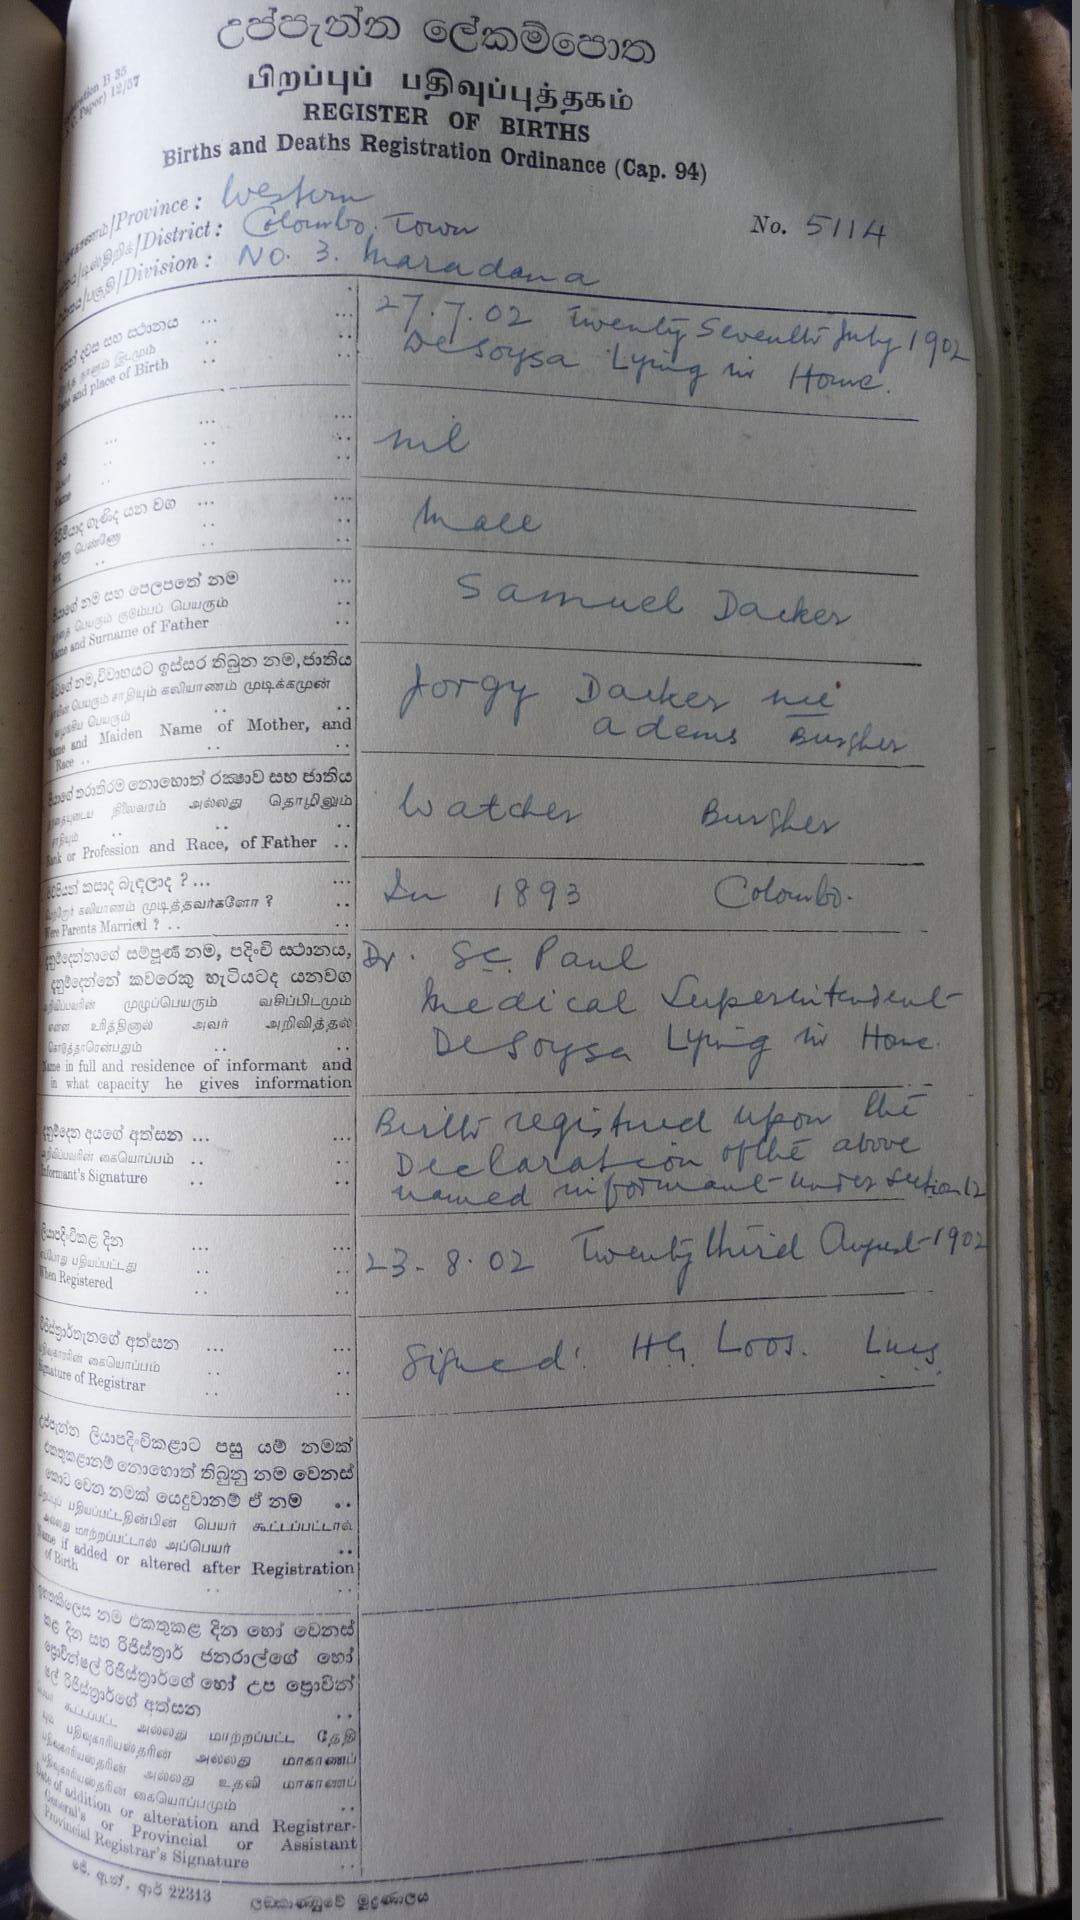 උප්පැන්න ලේකම්පොත
பிறப்புப் பதிவுப்புத்தகம்
REGISTER OF BIRTHS
Births and Deaths Registration Ordinance (Cap. 94)
B 35
Paper) 12/57
No. 5114
/Province : Western
/District : Colombo Town
/Division : No. 3. Maradana
දවස සහ ස්ථානය
and place of Birth
27.7.02 Twenty Seventh July 1902
De Soysa Lying in Home.
Name
nil
ගැණිද යන වග
Male
නම සහ පෙලපතේ නම
பெயரும் குடும்பப் பெயரும்
Name and Surname of Father
Samuel Dacker
නම, විවාහයට ඉස්සර තිබුන නම, ජාතිය
பெயரும் சாதியும் கலியாணம் முடிக்கமுன்
பெயரும்
Name and Maiden Name of Mother, and
Race ..
Jorgy Dacker née
Adems Burgher
තරාතිරම නොහොත් රක්ෂාව සහ ජාතිය
நிலைவரம் அல்லது தொழிலும்
Rank or Profession and Race, of Father ..
Watcher Burgher
කසාද බැඳලාද ? ...
கலியாணம் முடித்தவர்களோ ?
Were Parents Married ? ..
In 1893 Colombo.
සම්පූර්ණ නම, පදිංචි ස්ථානය,
දනුම්දෙන්නේ කවරෙකු හැටියටද යනවග
முழுப்பெயரும் வசிப்பிடமும்
என்ன உரித்தினால் அவர் அறிவித்தல்
கொடுத்தாரென்பதும்
Name in full and residence of informant and
in what capacity he gives information
Dr. S.C. Paul
Medical Superintendent
De Soysa Lying in Home.
දනුම්දෙන අයගේ අත්සන ...
அறிவிப்பவரின் கையொப்பம் ..
Informant's Signature
Birth registered upon the
Declaration of the above
named informant under section 12
ලියාපදිංචිකළ දින
எப்போது பதியப்பட்டது
When Registered
23.8.02 Twenty third August 1902
රෙජිස්ත්‍රාර්තැනගේ අත්සන
கையொப்பம்
Signature of Registrar
Signed: HG. Loos.
උප්පැන්න ලියාපදිංචිකළාට පසු යම් නමක්
එකතුකළානම් නොහොත් තිබුනු නම වෙනස්
කොට වෙන නමක් යෙදුවානම් ඒ නම ..
பதியப்பட்டதின்பின் பெயர் கூட்டப்பட்டால்
அல்லது மாற்றப்பட்டால் அப்பெயர்
Name if added or altered after Registration
of Birth
නම එකතුකළ දින හෝ වෙනස්
කළ දින සහ රිජිස්ත්‍රාර් ජනරාල්ගේ හෝ
ප්‍රොවින්ෂල් රිජිස්ත්‍රාර්ගේ හෝ උප ප්‍රොවින්
ෂල් රිජිස්ත්‍රාර්ගේ අත්සන
கூட்டப்பட்ட அல்லது மாற்றப்பட்ட தேதி
பதிவுகாரியஸ்தரின் அல்லது மாகாணப்
பதிவுகாரியஸ்தரின் அல்லது உதவி மாகாணப்
பதிவுகாரியஸ்தரின் கையொப்பமும்
Date of addition or alteration and Registrar-
General's or Provincial or Assistant
Provincial Registrar's Signature
ජේ. ඇන්. ආර් 22313 ලංකාණ්ඩුවේ මුද්‍රණාලය